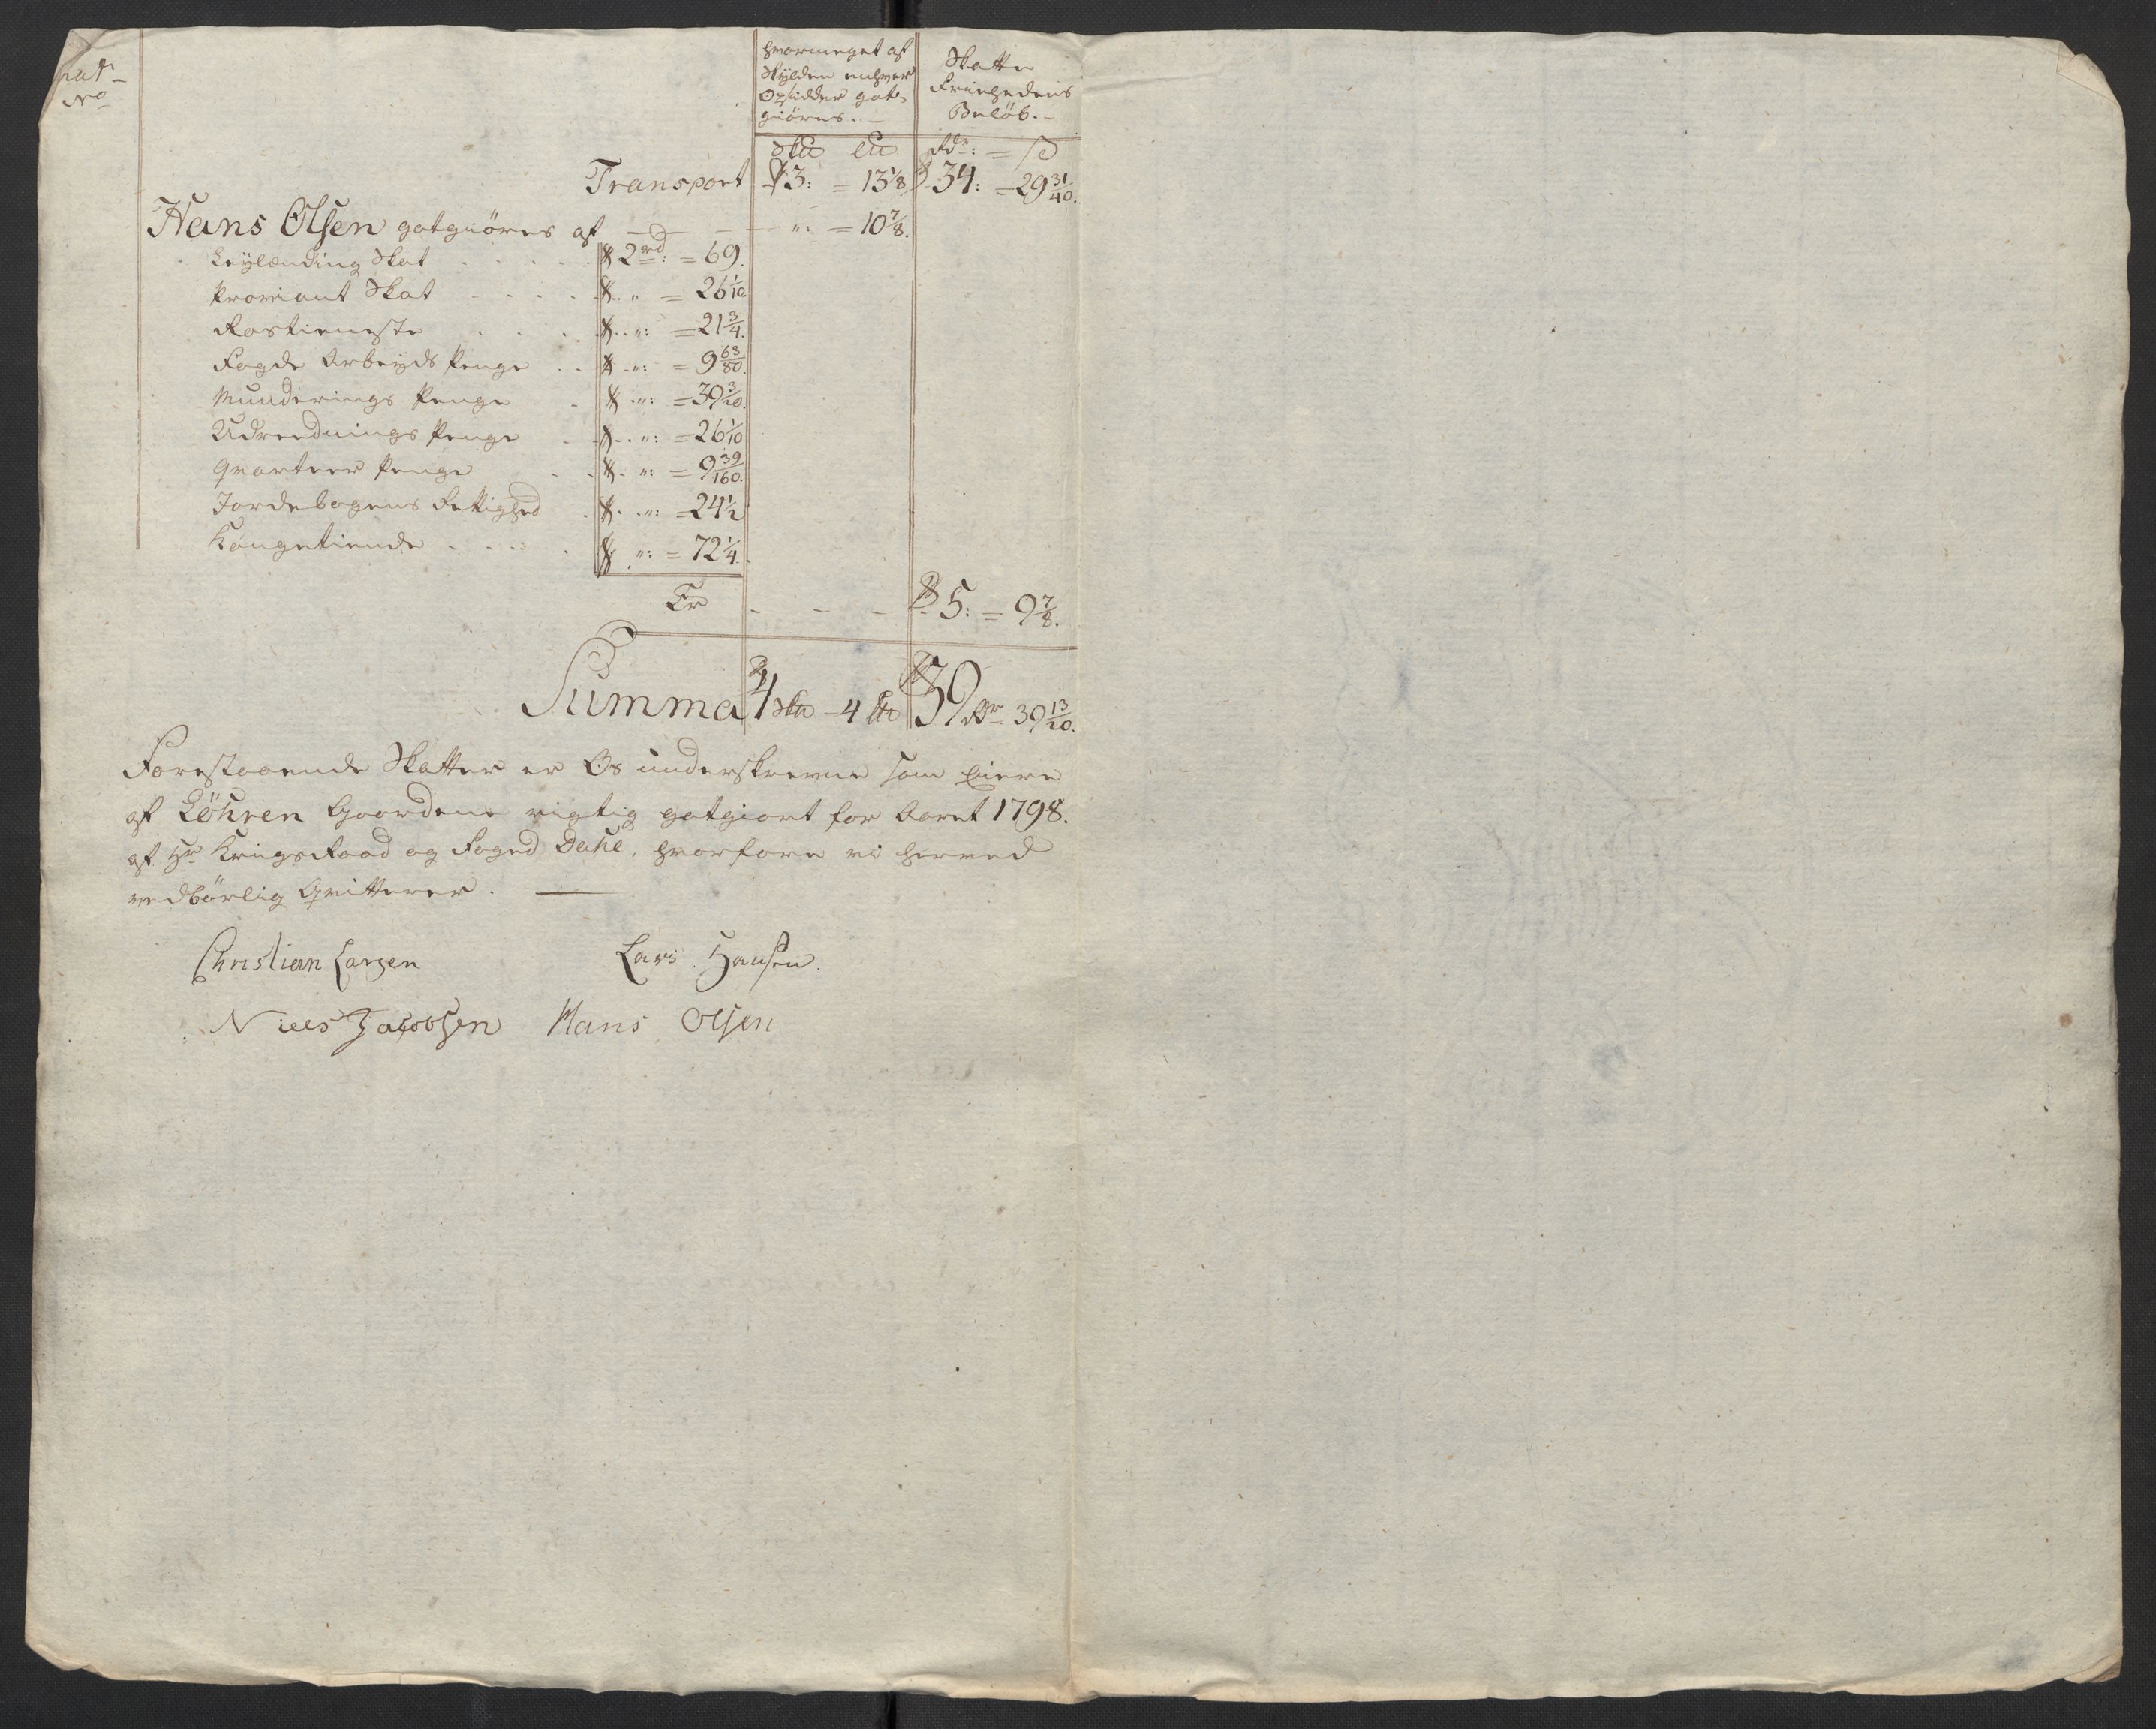 Mat:
No
hvormeget af
Skylden enhver
Opsidder got-
giöres. -
Skatte
Friehedens
Belöb. -
Rdr: = ß
Transport 3: = 13 1/8 34: = 29 31/40.
Hans Olsen gotgiöres af - - - ": = 10 7/8.
Leylænding Skat . . . . . 2 rd: = 69.
Proviant Skat . . . . " = 26 1/10.
Rostieneste . . . . ": = 21 3/4.
Fogde Arbeyds Penge . . ": = 9 63/80.
Munderings Penge . ": = 39 3/20.
Udreednings Penge . . ": = 26 1/10
Qvarteer Penge . . ": = 9 39/160.
Jordebogens Rettighed . ": = 24 1/2
Kongetiende . . . . ": = 72 1/4.
Er - - - 5: = 9 7/8.
Summa 4 - 4 39 Rdr 39 13/20.
Forestaaende Skatter er Os underskrevne som Eiere
af Löhren Gaardene rigtig gotgiort for Aaret 1798.
af Hr KriegsRaad og Foged Dahl, hvorfore vi herved
vedbörlig Qvitterer. -
Christian Larsen Lars Hansen.
Niels Jacobsen Hans Olsen